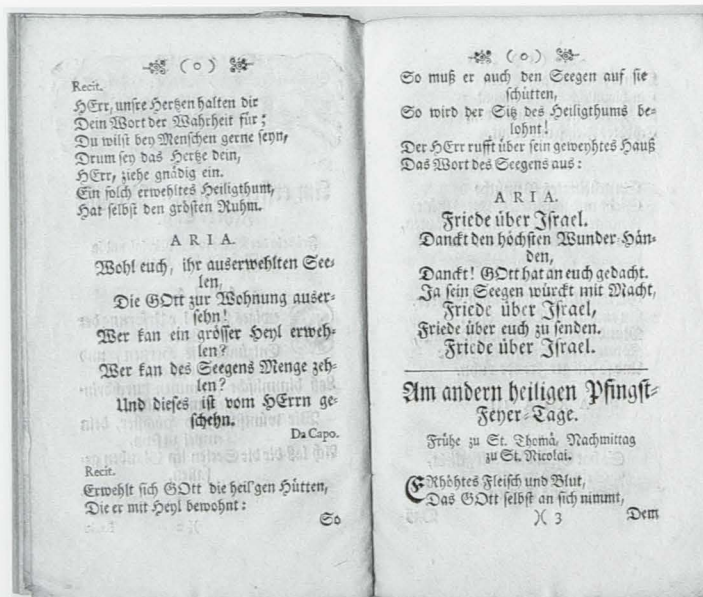 ( o )
Recit.
HErr, unsre Hertzen halten dir
Dein Wort der Wahrheit für;
Du wilst bey Menschen gerne seyn,
Drum sey das Hertze dein,
HErr, ziehe gnädig ein.
Ein solch erwehltes Heiligthum,
Hat selbst den grösten Ruhm.
ARIA.
Wohl euch, ihr auserwehlten See-
len,
Die GOtt zur Wohnung auser-
sehn!
Wer kan ein grösser Heyl erweh-
len?
Wer kan des Seegens Menge zeh-
len?
Und dieses ist vom HErrn ge-
schehn.
Da Capo.
Recit.
Erwehlt sich GOtt die heil'gen Hütten,
Die er mit Heyl bewohnt:
So
( o )
So muß er auch den Seegen auf sie
schütten,
So wird der Sitz des Heiligthums be-
lohnt!
Der HErr rufft über sein geweyhtes Hauß
Das Wort des Seegens aus:
ARIA.
Friede über Israel.
Danckt den höchsten Wunder-Hän-
den,
Danckt! GOtt hat an euch gedacht.
Ja sein Seegen würckt mit Macht,
Friede über Israel,
Friede über euch zu senden.
Friede über Israel.
Am andern heiligen Pfingst-
Feyer-Tage.
Frühe zu St. Thomä, Nachmittag
zu St. Nicolai.
ERhöhtes Fleisch und Blut,
Das GOtt selbst an sich nimmt,
)( 3
Dem